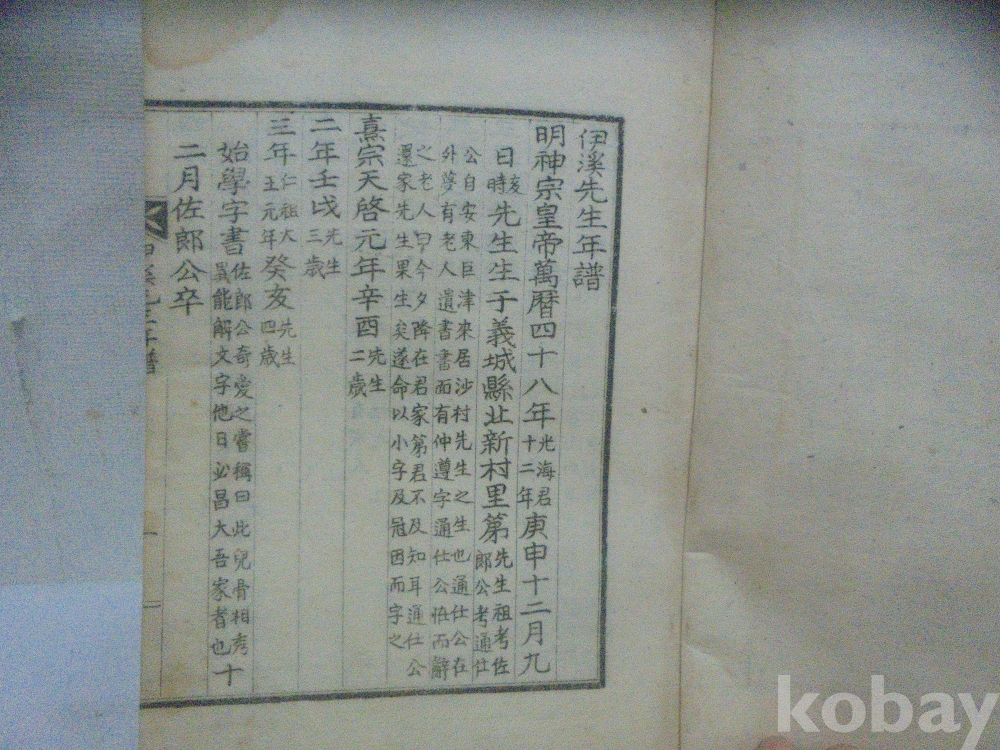 伊溪先生年譜
明神宗皇帝萬曆四十八年光海君十二年庚申十二月九
日亥時先生生于義城縣北新村里第先生祖考佐郎公考通仕
公自安東巨津來居沙村先生之生也通仕公在
外夢有老人遺書書面有仲遵字通仕公恠而辭
之老人曰今夕降在君家第君不及知耳通仕公
還家先生果生矣遂命以小字及冠因而字之
熹宗天啓元年辛酉先生二歲
二年壬戌先生三歲
三年仁祖大王元年癸亥先生四歲
始學字書佐郎公奇愛之嘗稱曰此兒骨相秀異能解文字他日必昌大吾家者也十
二月佐郎公卒
kobay